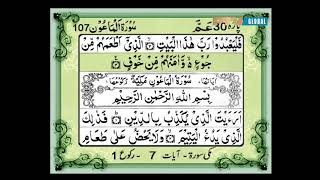 GLOBAL
پارہ 30 عَمَّ
سُوْرَةُ الْمَاعُوْن 107
فَلْيَعْبُدُوْا رَبَّ هٰذَا الْبَيْتِ ۙ الَّذِيْٓ اَطْعَمَهُمْ مِّنْ
جُوْعٍ ۙ وَّاٰمَنَهُمْ مِّنْ خَوْفٍ
سُوْرَةُ الْمَاعُوْنِ مَكِّيَّةٌ
بِسْمِ اللّٰهِ الرَّحْمٰنِ الرَّحِيْمِ
اَرَءَيْتَ الَّذِيْ يُكَذِّبُ بِالدِّيْنِ ۙ فَذٰلِكَ
الَّذِيْ يَدُعُّ الْيَتِيْمَ ۙ وَلَا يَحُضُّ عَلٰى طَعَامِ
مکی سورۃ - آیات 7 - رکوع 1